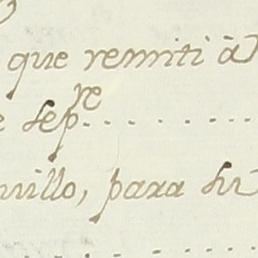 que remiti à
e sep.re
millo, para su